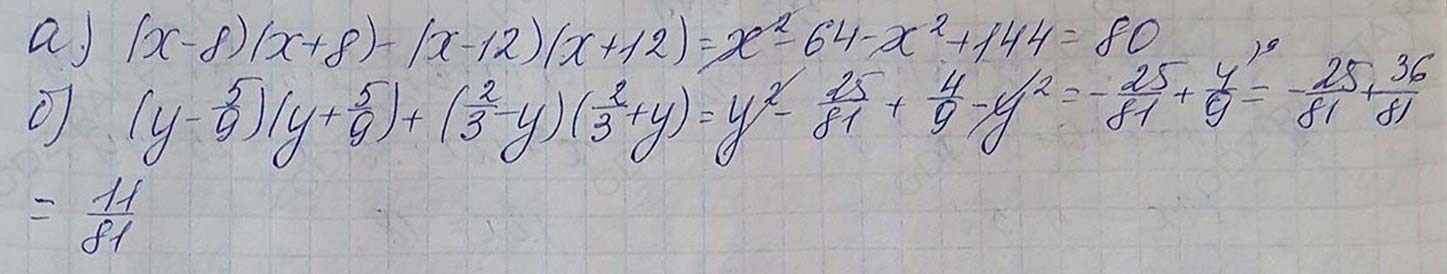 а) (x-8)(x+8)-(x-12)(x+12)=x²-64-x²+144=80
б) (y-5/9)(y+5/9)+(2/3-y)(2/3+y)=y²-25/81+4/9-y²=-25/81+4/9^{)9}=-25/81+36/81
=11/81